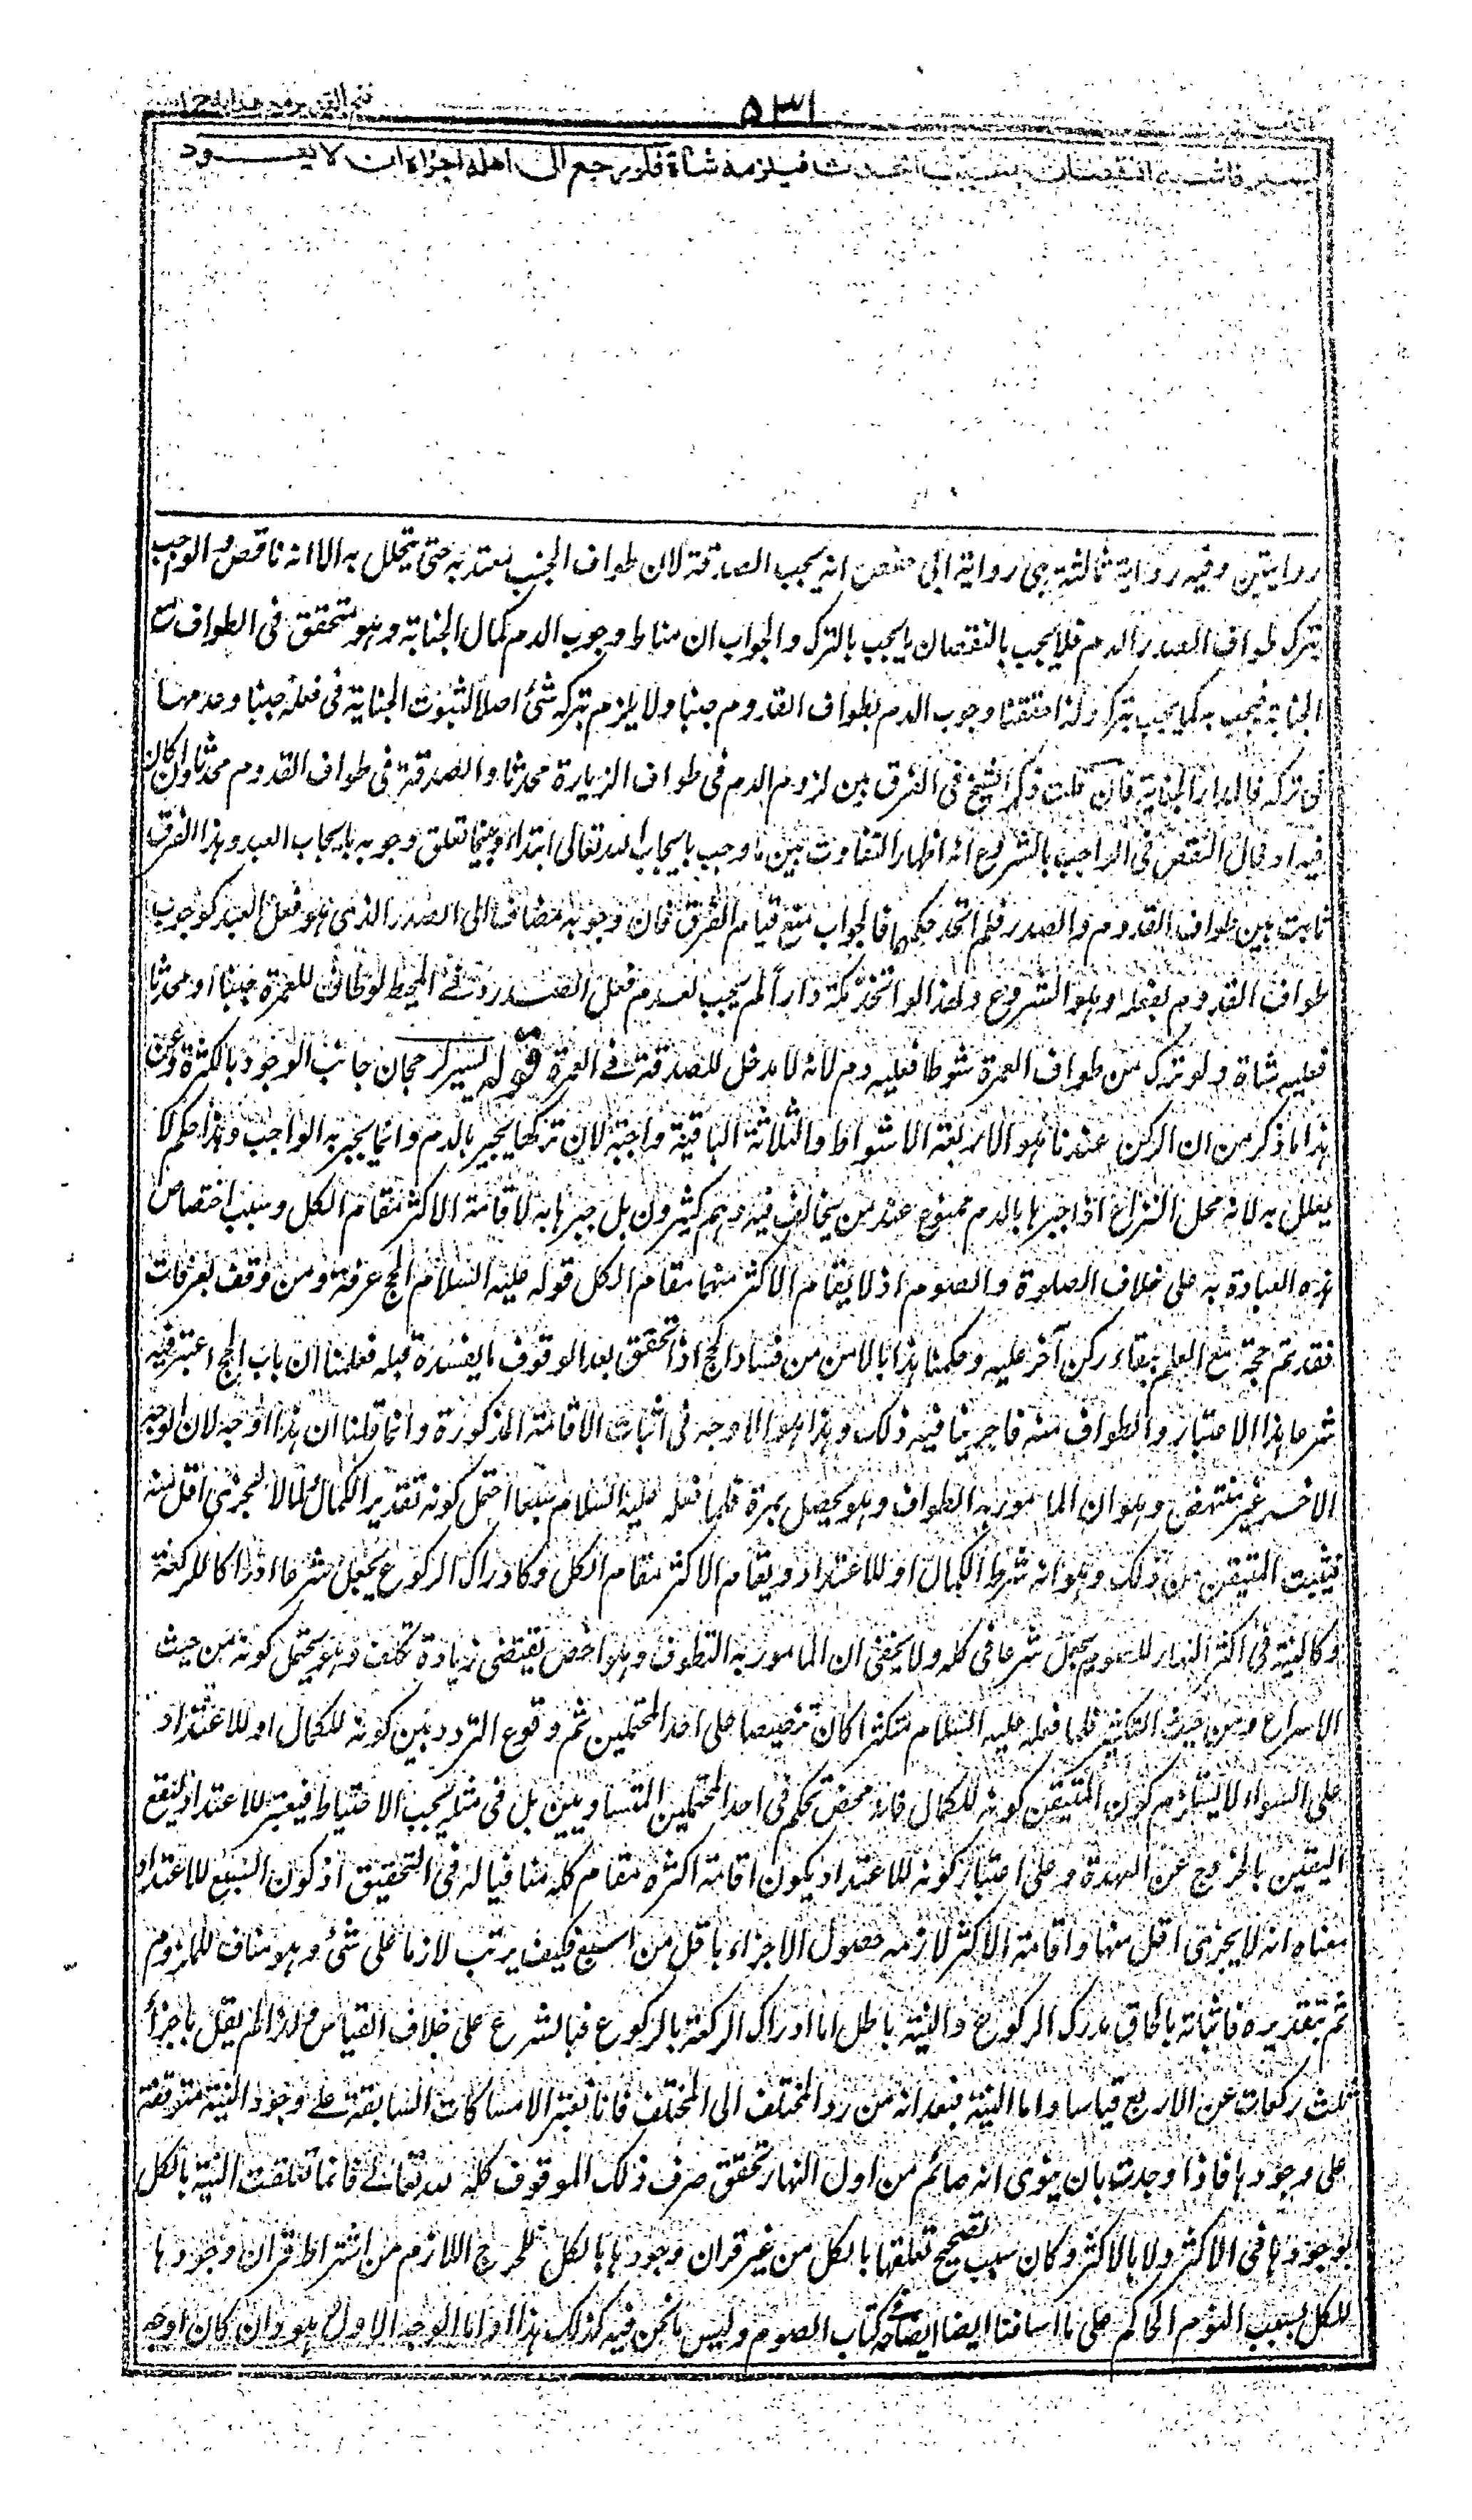 فتح القدير مع هداية ج
۵۳۱
يسير فاشبه النقصان بسبب الحدث فيلزمه شاة فلو رجع الى اهله اجزاه ان لا يعود
روايتين وفيه رواية ثالثة هى رواية ابى حفص انه يجب الصدقة لان طواف الجنب معتد به حتى يتحلل به الا انه ناقص والواجب
بترك طواف الصدر الدم فلا يجب بالنقصان ما يجب بالترك والجواب ان مناط وجوب الدم كمال الجناية وهو متحقق فى الطواف مع
الجنابة فيجب به كما يجب بتركه ولذا حققنا وجوب الدم بطواف القدوم جنبا ولا يلزم بتركه شئ اصلا لثبوت الجناية فى فعله جنبا وعدمها
فى تركه فالمدار الجناية فان قلت ذكر الشيخ فى الفرق بين لزوم الدم فى طواف الزيارة محدثا والصدقة فى طواف القدوم محدثا وان كان
فيه ادخال النقص فى الواجب بالشروع انه اظهار التفاوت بين ما وجب بايجاب الله تعالى ابتداء وبين ما تعلق وجوبه بايجاب العبد وهذا الفرق
ثابت بين طواف القدوم والصدر فلم اتحد حكمهما فالجواب منع قيام الفرق فان وجوبه مضاف الى الصدر الذى هو فعل العبد كوجوب
طواف القدوم بفعله وهو الشروع ولهذا لو اتخذ مكة دارا لم يجب لعدم فعل الصدر وفى المحيط لو طاف للعمرة جنبا او محدثا
فعليه شاة ولو ترك من طواف العمرة شوطا فعليه دم لانه لا مدخل للصدقة فى العمرة قوله يسير لرجحان جانب الوجود بالكثرة وعن
هذا ما ذكر من ان الركن عندنا هو الاربعة الاشواط والثلاثة الباقية واجبة لان تركها يجبر بالدم وانما يجبر به الواجب وهذا حكم لا
يعلل به لانه محل النزاع اذ اجبرها بالدم ممنوع عند من يخالف فيه وهم كثيرون بل جبرها به لاقامة الاكثر مقام الكل وسبب اختصاص
هذه العبادة به على خلاف الصلوة والصوم اذ لا يقام الاكثر منهما مقام الكل قوله عليه السلام الحج عرفة ومن وقف بعرفات
فقد تم حجه مع العلم ببقاء ركن آخر عليه وحكمنا لهذا بالامن من فساد الحج اذا تحقق بعد الوقوف ما يفسده قبله فعلمنا ان باب الحج اعتبر فيه
شرعا هذا الاعتبار والطواف منه فاجرينا فيه ذلك وهذا هو الاوجه فى اثبات الاقامة المذكورة وانما قلنا ان هذا اوجه لان الوجه
الاخر غير منتهض وهو ان المامور به الطواف وهو يحصل بمرة فلما فعله عليه السلام سبعا احتمل كونه تقدير الكمال ولما لا يجزئ اقل منه
فيثبت المتيقن من ذلك وهو انه شرط الكمال او للاعتداد ويقام الاكثر مقام الكل وكادراك الركوع يجعل شرعا ادراكا للركعة
وكالنية فى اكثر النهار للصوم يجعل شرعا فى كله ولا يخفى ان المامور به التطوف وهو اخص يقتضى زيادة تكلف وهو يحتمل كونه من حيث
الاسراع ومن حيث التكثير فلما فعله عليه السلام متكثرا كان تنصيصا على احد المحتملين ثم وقوع التردد بين كونه للكمال او للاعتداد
على السواء لا يستلزم كون المتيقن كونه للكمال فانه محض تحكم فى احد المحتملين المتساويين بل فى مثله يجب الاحتياط فيعتبر للاعتداد ليقع
اليقين بالخروج عن العهدة وعلى اعتبار كونه للاعتداد يكون اقامة اكثره مقام كله منافيا له فى التحقيق اذ كون السبع للاعتداد
معناه انه لا يجزئ اقل منها واقامة الاكثر لازمه حصول الاجزاء باقل من السبع فكيف يرتب لازما على شئ وهو مناف للملزوم
ثم بتقديره فاثباته بالحاق مدرك الركوع والنية باطل اما ادراك الركعة بالركوع فبالشرع على خلاف القياس ولهذا لم يقل باجزاء
ثلث ركعات عن الاربع قياسا واما النية فبعد انه من رد المختلف الى المختلف فانا نعتبر الامساكات السابقة على وجود النية متوقفة
على وجودها فاذا وجدت بان ينوى انه صائم من اول النهار تحقق صرف ذلك الموقوف كله لله تعالى فانما تعلقت النية بالكل
لوجودها فى الاكثر ولا بالاكثر وكان سبب تصحيح تعلقها بالكل من غير قران وجودها بالكل للحرج اللازم من اشتراط قران وجودها
للكل بسبب النوم الحاكم على ما اسلفنا ايضاحه فى كتاب الصوم وليس ما نحن فيه كذلك هذا واما الوجه الاول هو وان كان اوجه